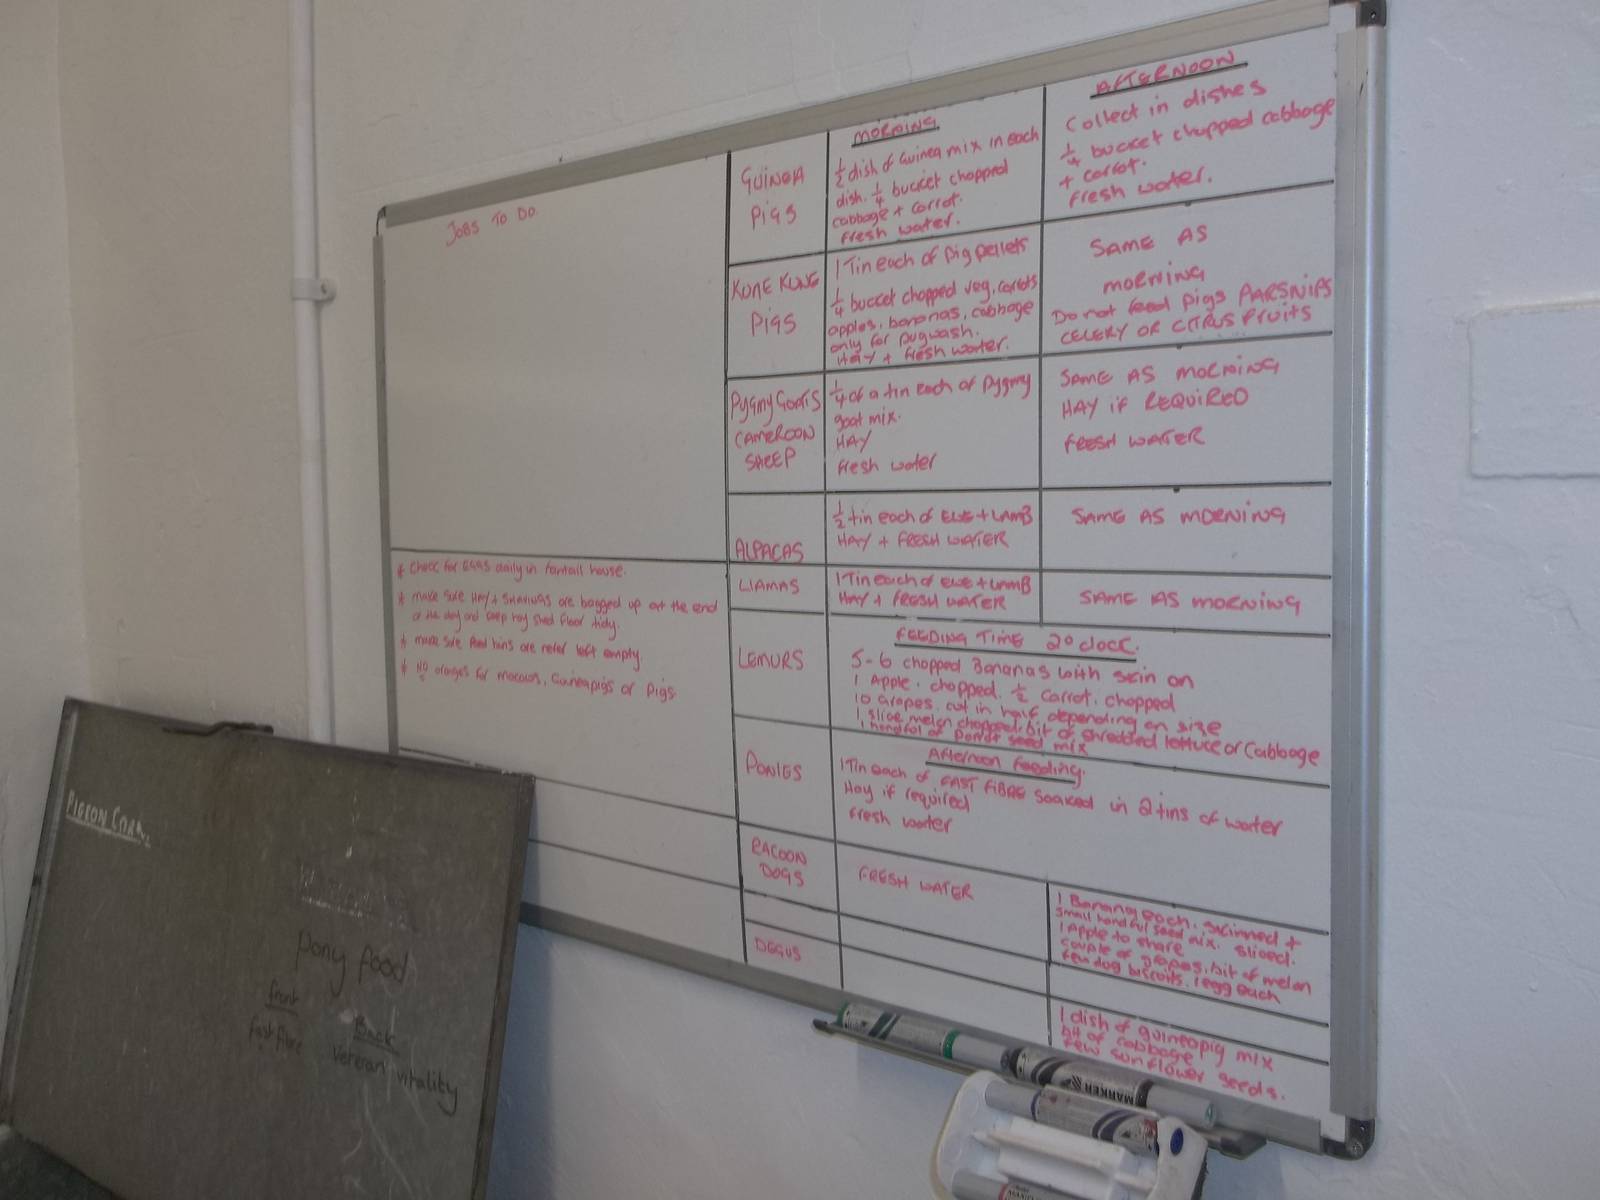 JOBS TO DO
* Check for EGGS daily in fantail house.
* make sure HAY + SHAVINGS are bagged up at the end
of the day and keep hay shed floor tidy.
* make sure food bins are never left empty.
* NO oranges for macaws, Guineapigs or Pigs
MORNING
AFTERNOON
GUINEA
PIGS
1/2 dish of Guinea mix in each
dish. 1/4 bucket chopped
cabbage + carrot.
Fresh water.
Collect in dishes
1/4 bucket chopped cabbage
+ carrot.
Fresh water.
KUNE KUNE
PIGS
1 Tin each of pig pellets
1/4 bucket chopped veg, carrots
apples, bananas, cabbage
only for pugwash.
HAY + fresh water.
SAME AS
morning
Do not feed pigs PARSNIPS
CELERY OR CITRUS FRUITS
Pygmy Goats
CAMEROON
SHEEP
1/4 of a tin each of Pygmy
goat mix.
HAY
fresh water
SAME AS MORNING
HAY if REQUIRED
FRESH WATER
ALPACAS
1/2 tin each of EWE + LAMB
HAY + FRESH WATER
SAME AS MORNING
LIAMAS
1 Tin each of EWE + LAMB
HAY + FRESH WATER
SAME AS MORNING
LEMURS
FEEDING TIME 2 o clock.
5-6 chopped Bananas with skin on
1 Apple. chopped. 1/2 Carrot. chopped
10 Grapes. cut in half depending on size
1 slice melon chopped. bit of shredded lettuce or Cabbage
1 handful of parrot seed mix
PONIES
Afternoon feeding.
1 Tin each of FAST FIBRE soaked in 2 tins of water
Hay if required
Fresh water
RACOON
DOGS
FRESH WATER
1 Banana each. skinned +
small handful seed mix. sliced.
1 Apple to share
couple of grapes, bit of melon
few dog biscuits. 1 egg each
DEGUS
1 dish of guineapig mix
bit of cabbage
few sunflower seeds.
PIGEON CARE.
Pony food
front
Back
fast fibre
Veteran vitality
MARKER